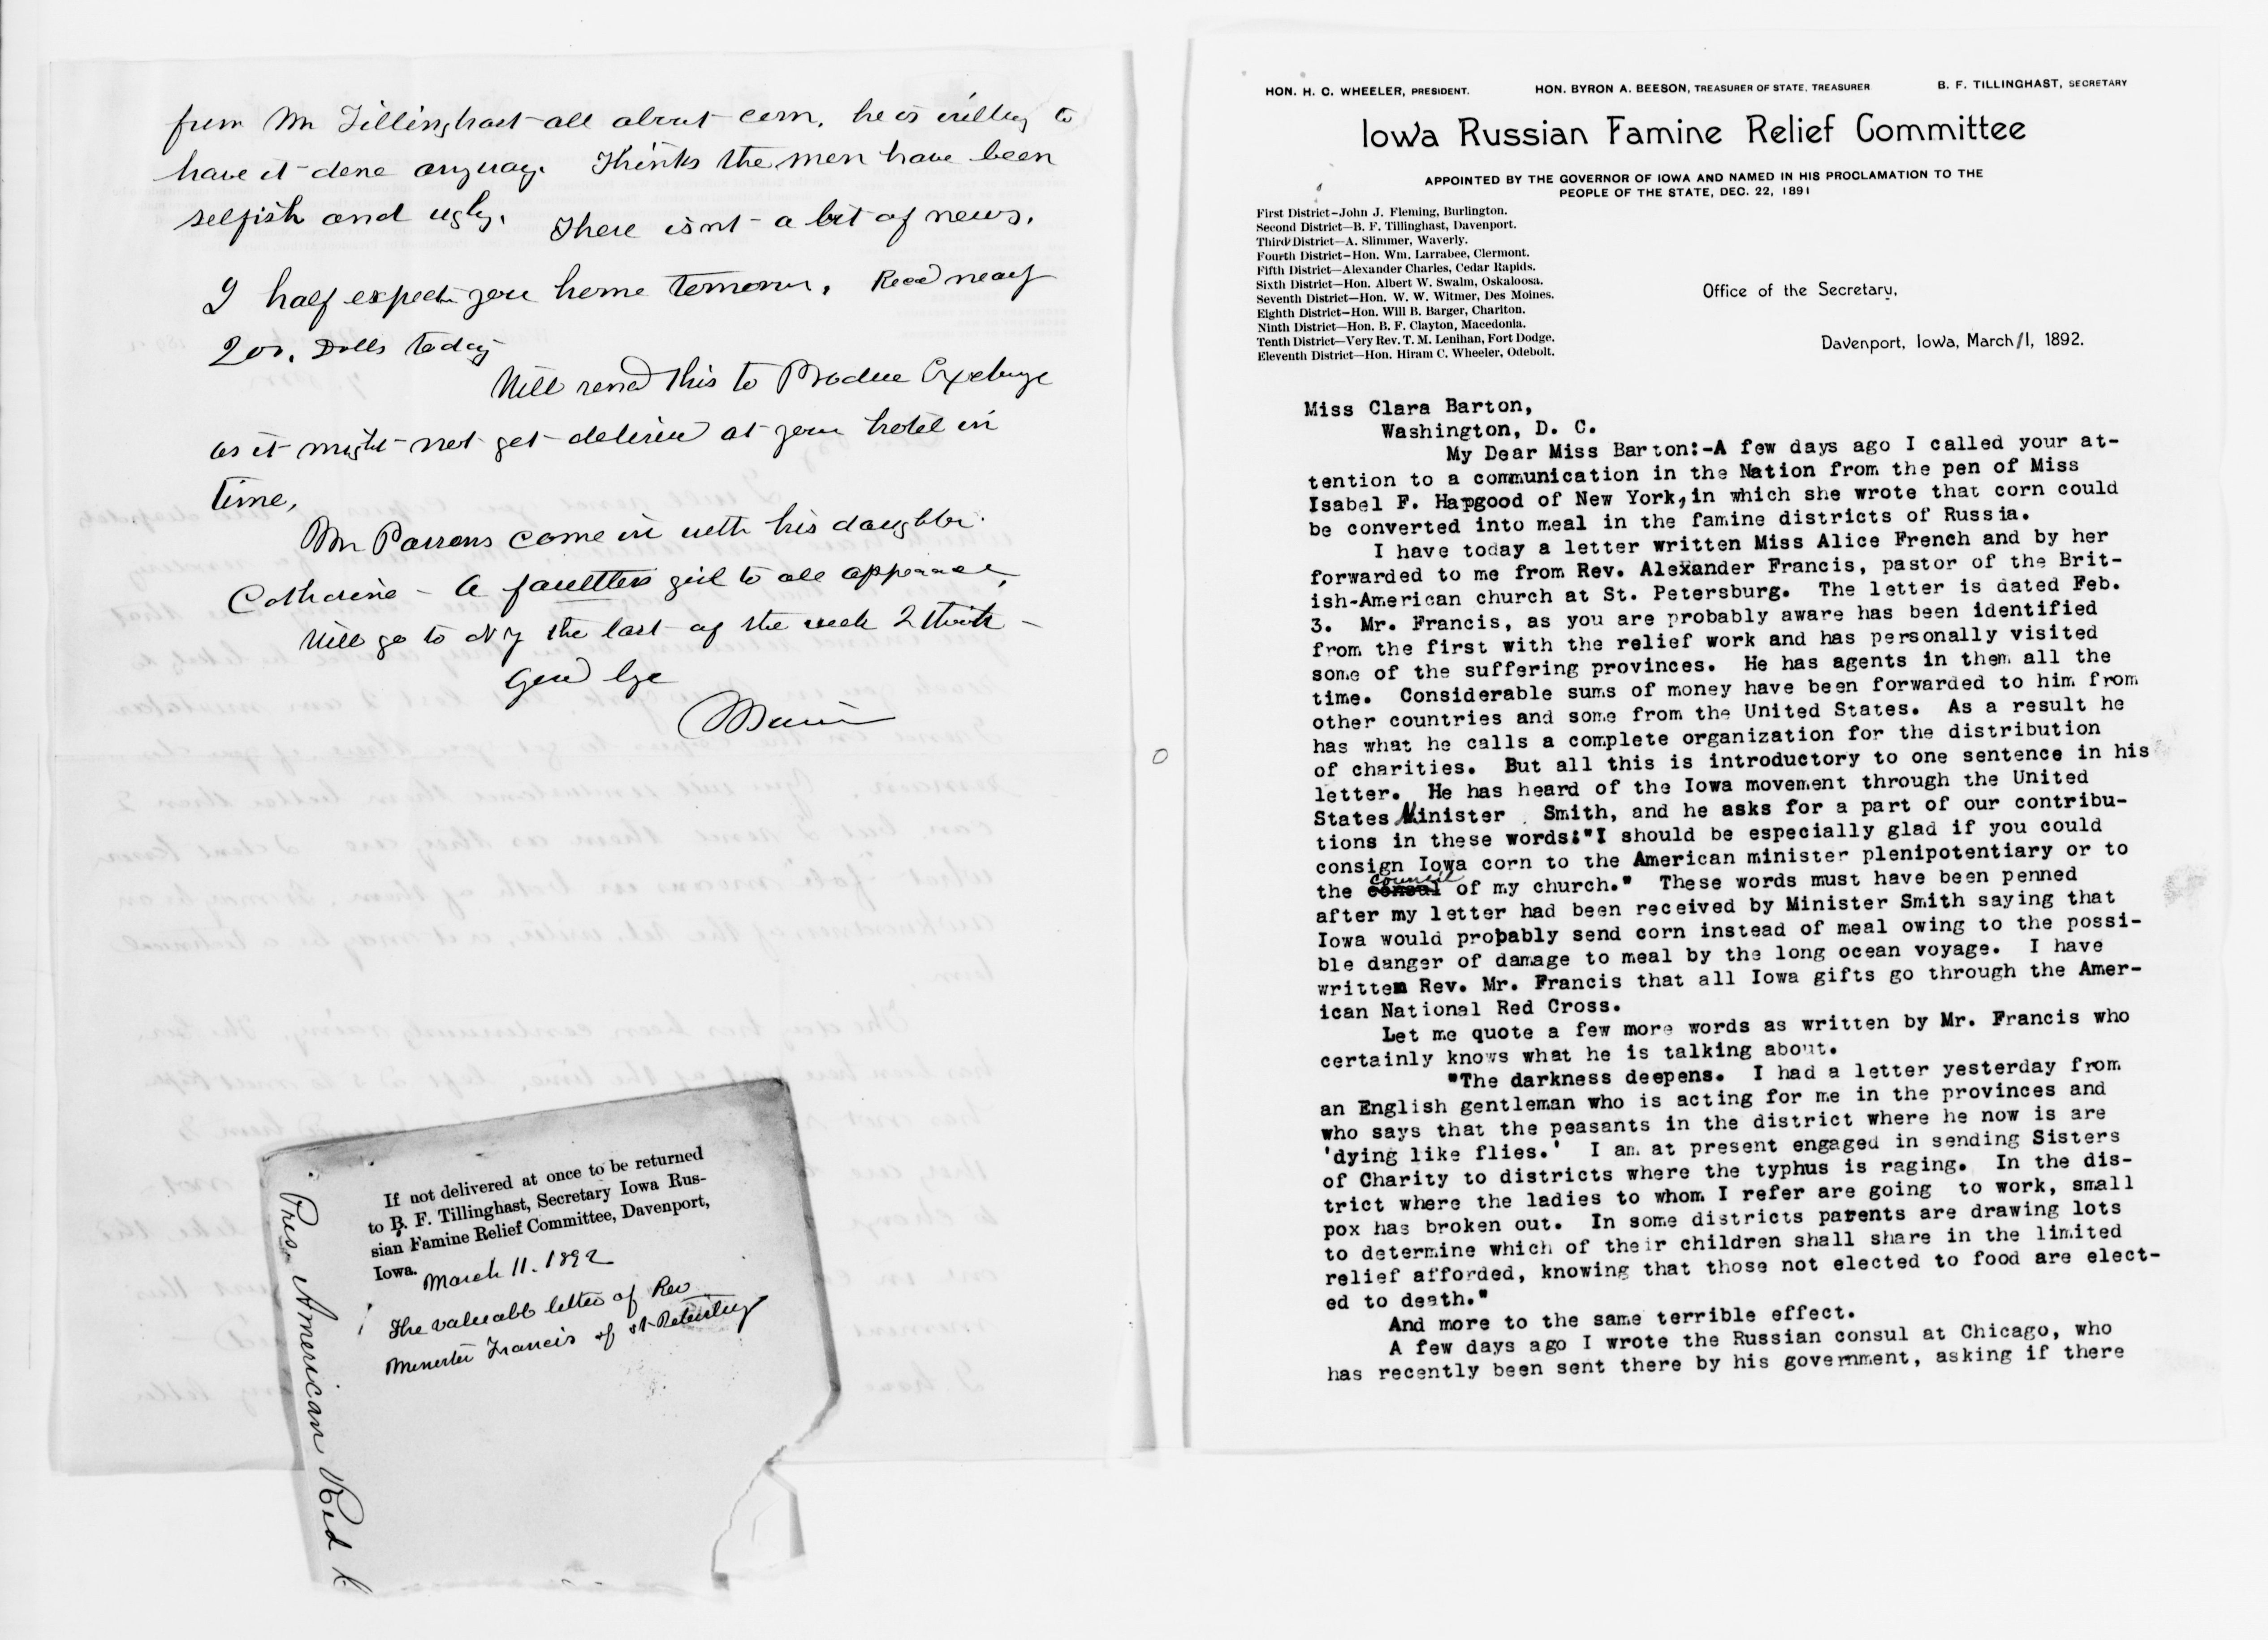 from Mr Tillinghast all about corn. he is willing to
have it done anyway. Thinks the men have been
selfish and ugly. There isnt a bit of news.
I half expect you home tomorrow. Recd nearly
200. Dolls today
Will send this to Produce Exchange
as it might not get delivered at your hotel in
time,
Mr Parsons come in with his daughter
Catharine - A faultless girl to all appearances,
Will go to N Y the last of the week I think -
Good bye
If not delivered at once to be returned
to B. F. Tillinghast, Secretary Iowa Rus-
sian Famine Relief Committee, Davenport,
Iowa.
March 11. 1892
The valuable letter of Rev
Minister Francis of St Petersburg
Pres. American Red
HON. H. C. WHEELER, PRESIDENT. HON. BYRON A. BEESON, TREASURER OF STATE, TREASURER B. F. TILLINGHAST, SECRETARY
Iowa Russian Famine Relief Committee
APPOINTED BY THE GOVERNOR OF IOWA AND NAMED IN HIS PROCLAMATION TO THE
PEOPLE OF THE STATE, DEC. 22, 1891
First District-John J. Fleming, Burlington.
Second District—B. F. Tillinghast, Davenport.
Third District—A. Slimmer, Waverly.
Fourth District-Hon. Wm. Larrabee, Clermont.
Fifth District—Alexander Charles, Cedar Rapids.
Sixth District—Hon. Albert W. Swalm, Oskaloosa.
Seventh District—Hon. W. W. Witmer, Des Moines.
Eighth District—Hon. Will B. Barger, Chariton.
Ninth District—Hon. B. F. Clayton, Macedonia.
Tenth District—Very Rev. T. M. Lenihan, Fort Dodge.
Eleventh District—Hon. Hiram C. Wheeler, Odebolt.
Office of the Secretary,
Davenport, Iowa, March 11, 1892.
Miss Clara Barton,
Washington, D. C.
My Dear Miss Barton:-A few days ago I called your at-
tention to a communication in the Nation from the pen of Miss
Isabel F. Hapgood of New York, in which she wrote that corn could
be converted into meal in the famine districts of Russia.
I have today a letter written Miss Alice French and by her
forwarded to me from Rev. Alexander Francis, pastor of the Brit-
ish-American church at St. Petersburg. The letter is dated Feb.
3. Mr. Francis, as you are probably aware has been identified
from the first with the relief work and has personally visited
some of the suffering provinces. He has agents in them all the
time. Considerable sums of money have been forwarded to him from
other countries and some from the United States. As a result he
has what he calls a complete organization for the distribution
of charities. But all this is introductory to one sentence in his
letter. He has heard of the Iowa movement through the United
States Minister Smith, and he asks for a part of our contribu-
tions in these words:"I should be especially glad if you could
consign Iowa corn to the American minister plenipotentiary or to
the consul council of my church." These words must have been penned
after my letter had been received by Minister Smith saying that
Iowa would probably send corn instead of meal owing to the possi-
ble danger of damage to meal by the long ocean voyage. I have
written Rev. Mr. Francis that all Iowa gifts go through the Amer-
ican National Red Cross.
Let me quote a few more words as written by Mr. Francis who
certainly knows what he is talking about.
"The darkness deepens. I had a letter yesterday from
an English gentleman who is acting for me in the provinces and
who says that the peasants in the district where he now is are
'dying like flies.' I am at present engaged in sending Sisters
of Charity to districts where the typhus is raging. In the dis-
trict where the ladies to whom I refer are going to work, small
pox has broken out. In some districts parents are drawing lots
to determine which of their children shall share in the limited
relief afforded, knowing that those not elected to food are elect-
ed to death."
And more to the same terrible effect.
A few days ago I wrote the Russian consul at Chicago, who
has recently been sent there by his government, asking if there